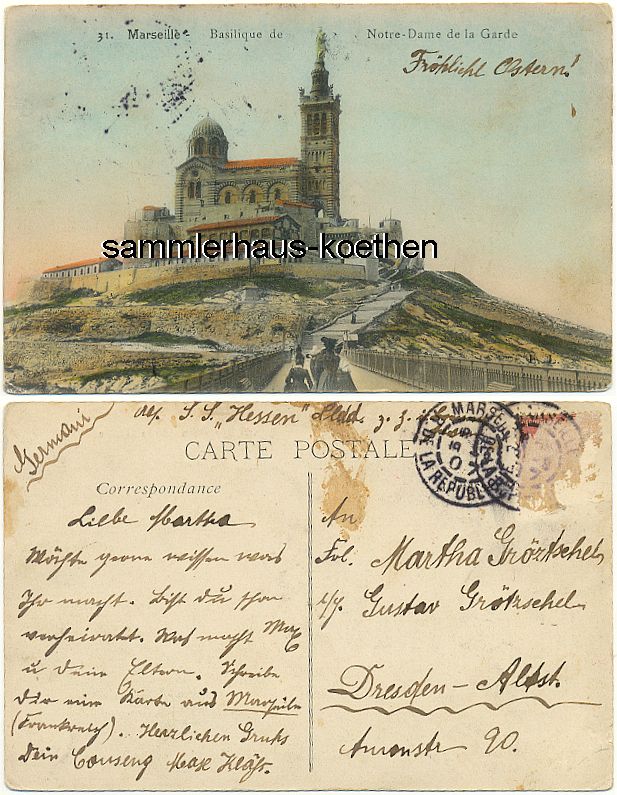 31. Marseille - Basilique de Notre-Dame de la Garde
Fröhlicht Ostern!
sammlerhaus-koethen
S.S. „Hessen"
Germani
CARTE POSTALE
MARSEILLE
DE LA REPUBLIQUE
Correspondance
Liebe Martha
Möchte gerne wissen was
Ihr macht. Bist du schon
verheiratet. Was macht Max
u Deine Eltern. Schreibe
Dir eine Karte aus Marseille
(Frankreich). Herzlichen Gruß
Dein Couseng Max
An
Frl. Martha Grötzschel
Gustav Grötzschel
Dresden - Altst.
Ammonstr 90.